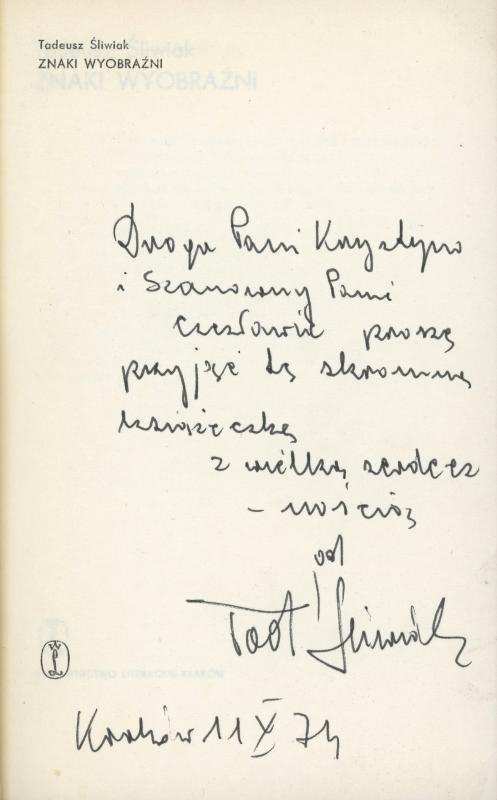 Tadeusz Śliwiak
ZNAKI WYOBRAŹNI
Droga Pani Krystyno
i Szanowny Panie
Czesławie proszę
przyjąć tę skromną
książeczkę
z wielką serdecz
– nością
od
Tad Śliwiak
WL
Kraków 11 X 74